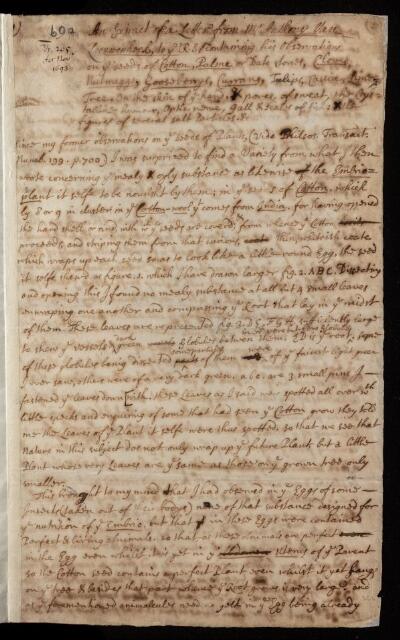 602
Tr. 205.
for Nov
1693
An Extract of a Letter from Mr Anthony Van
Leeuwenhoek, to ye R:S: containing his Observations
on ye seeds of Cotton, Palme or Date stones, Cloves,
Nutmegs, Goosberrys, Currans, Tulips, Cassia, Lime
Tree: On the skin of ye hand, & pores, of sweat, the Crys-
talline humor, Optic nerve, Gall, & scales of fish: & the
figures of several salt particles &c.
Since my former observations on ye seeds of Plants, (Vide Philos. Transact.
Num. 199. p. 700) I was surprized to find a Variety from what I then
wrote concerning ye mealy & oily substance as likewise of the Embrio-
plant it selfe to be nourisht by them; in ye seeds of Cotton, which
ly 8 or 9 in clusters in ye Cotton-wool yt comes from India. for having opened
the hard shell or rind with wch ye seeds are covered, from whence ye Cotton
proceeds, and striping them from that curious thin whitish coate
which wraps up each seed so as to look like a little round Egg, the seed
it selfe then is as figure 1. which I have drawn larger fig. 2. ABC. Dissecting
and opening this I found no mealy substance at all but 4 small leaves
enwraping one another and incompassing ye Root that lay in ye midst
of them. These leaves are represented fig. 3. D E F G H sufficiently large
to shew ye vessels & globules between them. ID is ye root, some
of these globules being dissected of them of ye fairest light green
I ever saw, others were of a very dark green. a b c are 3 small pins I
fastened ye leaves down with. These Leaves as I said was spotted all over with
little specks and enquiring of some that had seen ye Cotton grow they told
me the Leaves of ye Plant it selfe were thus spotted, so that we see that
Nature in this subject does not only wrap up ye future Plant, but a little
Plant whose very Leaves are ye same as those on ye grown tree only
smaller.
This brought to my mind that I had observed in ye Eggs of some
Insects (taken out of their bodys) none of that substance designed for
ye nutrition of ye Embrio, but that in these Eggs were contained
Perfect & living animals. so that as these Animals are perfect
in the Egg even whilst this yet in ye Uterus of ye Parent
so the Cotton seed contains a perfect Plant even whilst it yet hangs
on ye tree & besides that part whence ye Root grows is very large, and
as ye forementioned animalcules need no yelk in ye Egg being already